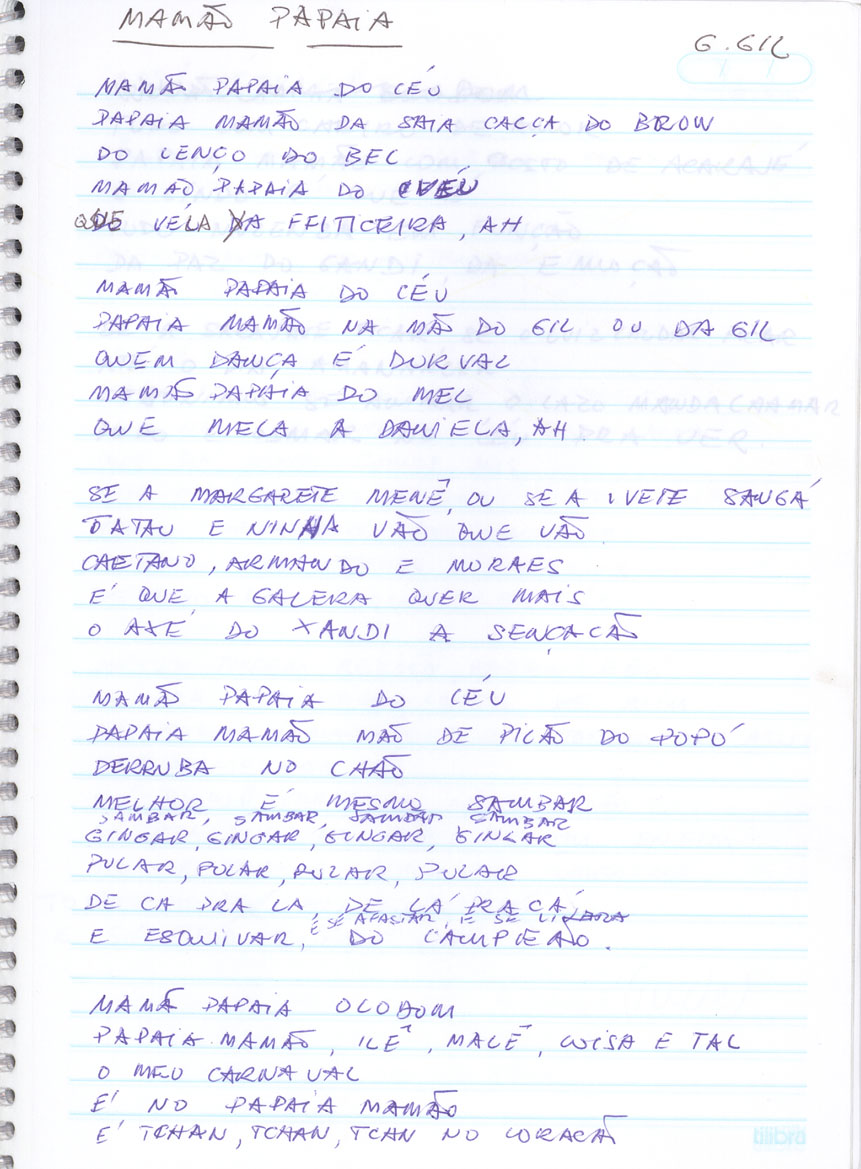 MAMÃO PAPAIA
G. GIL
MAMÃ PAPAIA DO CÉU
PAPAIA MAMÃO DA SAIA CACÇA DO BROW
DO LENÇO DO BEL
MAMÃO PAPAIA DO VÉU
QUE VÉLA A FEITICEIRA, AH
MAMÃ PAPAIA DO CÉU
PAPAIA MAMÃO NA MÃO DO GIL OU DA GIL
QUEM DANÇA É DURVAL
MAMÃO PAPAIA DO MEL
QUE MELA A DANIELA, AH
SE A MARGARETE MENÊ, OU SE A IVETE SANGÁ
TATAU E NINHA VÃO QUE VÃO
CAETANO, ARMANDO E MORAES
É QUE A GALERA QUER MAIS
O AXÉ DO XANDI A SENÇACÃO
MAMÃO PAPAIA DO CÉU
PAPAIA MAMÃO MÃO DE PILÃO DO POPÓ
DERRUBA NO CHÃO
MELHOR É MESMO SAMBAR
SAMBAR, SAMBAR, SAMBAR SAMBAR
GINGAR, GINGAR, GINGAR, GINGAR
PULAR, PULAR, PULAR, PULAR
DE CA PRA LA, DE LÁ PRACÁ,
E SE AFASTAR, E SE
E ESQUIVAR, DO CAMPEÃO.
MAMÃ PAPAIA OLODOM
PAPAIA MAMÃO, ILÊ, MALÊ, COISA E TAL
O MEU CARNAVAL
É NO PAPAIA MAMÃO
É TCHAN, TCHAN, TCAN NO CORACÃO
tilibra